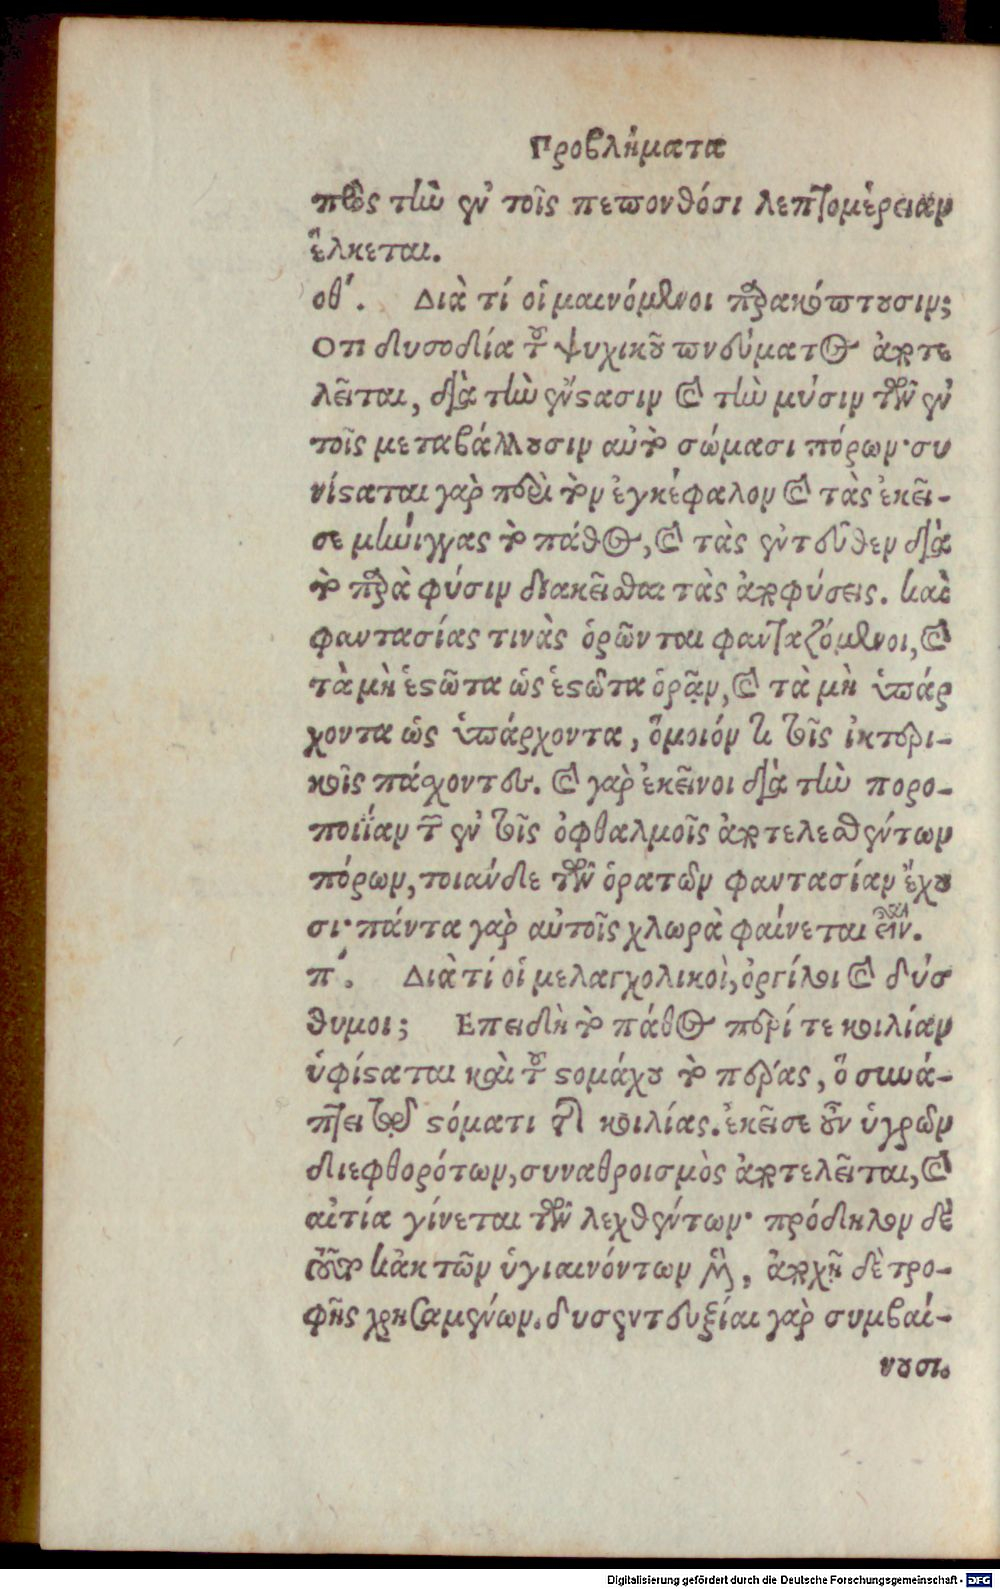 Προβλήματα
πρὸς τὴν ἐν τοῖς πεπονθόσι λεπτομέρειαν
ἕλκεται.
οθʹ. Διὰ τί οἱ μαινόμενοι παρακόπτουσιν;
Ὅτι δυσοδία τοῦ ψυχικοῦ πνεύματος ἀποτε
λεῖται, διὰ τὴν ἔνστασιν καὶ τὴν μύσιν τῶν ἐν
τοῖς μεταβάλλουσιν αὐτὸ σώμασι πόρων· συ
νίσταται γὰρ περὶ τὸν ἐγκέφαλον καὶ τὰς ἐκεῖ-
σε μήνιγγας τὸ πάθος, καὶ τὰς ἐντεῦθεν διὰ
τὸ παρὰ φύσιν διακεῖσθαι τὰς ἀποφύσεις. καὶ
φαντασίας τινὰς ὁρῶνται φανταζόμενοι, καὶ
τὰ μὴ ἑστῶτα ὡς ἑστῶτα ὁρᾷν, καὶ τὰ μὴ ὑπάρ
χοντα ὡς ὑπάρχοντα, ὅμοιόν τι τοῖς ἰκτερι-
κοῖς πάσχοντες. καὶ γὰρ ἐκεῖνοι διὰ τὴν πορο-
ποιΐαν τῶν ἐν τοῖς ὀφθαλμοῖς ἀποτελεσθέντων
πόρων, τοιάνδε τῶν ὁρατῶν φαντασίαν ἔχου
σι· πάντα γὰρ αὐτοῖς χλωρὰ φαίνεται εἶναι.
πʹ. Διὰ τί οἱ μελαγχολικοὶ, ὀργίλοι καὶ δύσ
θυμοι; Ἐπειδὴ τὸ πάθος περί τε κοιλίαν
ὑφίσταται καὶ τοῦ στομάχου τὸ πέρας, ὃ συνά-
πτει τῷ στόματι τῆς κοιλίας. ἐκεῖσε οὖν ὑγρῶν
διεφθορότων, συναθροισμὸς ἀποτελεῖται, καὶ
αἰτία γίνεται τῶν λεχθέντων· πρόδηλον δὲ
τοῦτο κἀκ τῶν ὑγιαινόντων μὲν, ἀρχῇ δὲ τρο-
φῆς χρησαμένων. δυσεντευξίαι γὰρ συμβαί-
νουσι.
Digitalisierung gefördert durch die Deutsche Forschungsgemeinschaft - DFG